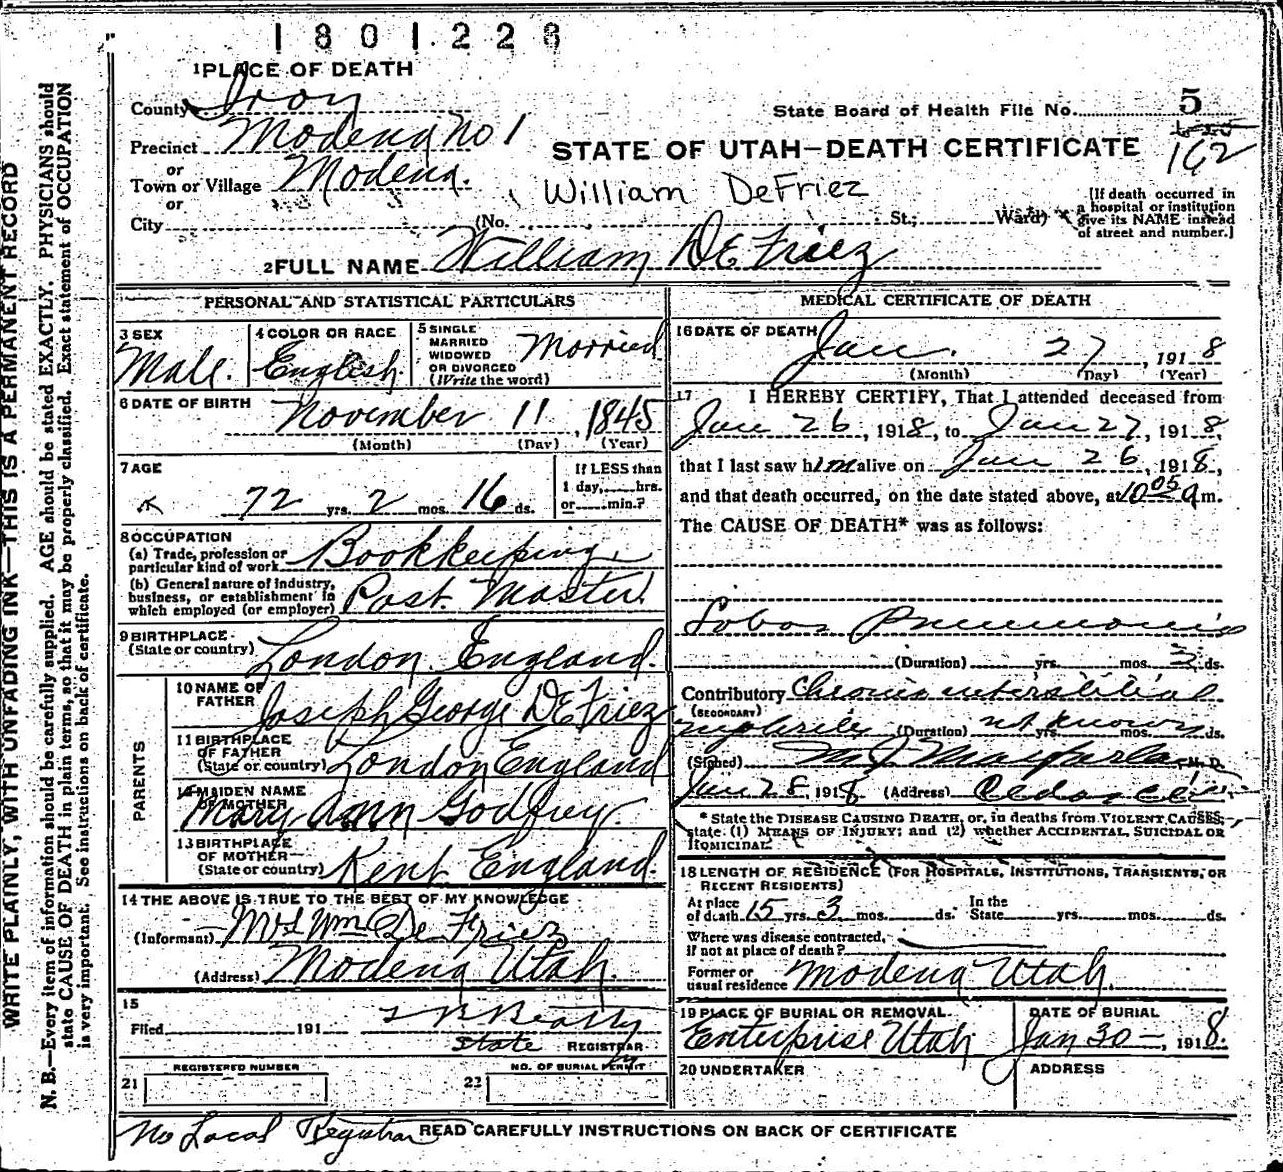 1801226
1 PLACE OF DEATH
County Iron
State Board of Health File No. 5
Precinct Modena No 1
162
STATE OF UTAH—DEATH CERTIFICATE
or
Town or Village Modena.
William DeFriez
or
City (No. St.; Ward)
[If death occurred in
a hospital or institution
give its NAME instead
of street and number.]
2 FULL NAME William DeFriez
PERSONAL AND STATISTICAL PARTICULARS
3 SEX
Male.
4 COLOR OR RACE
English
5 SINGLE
MARRIED
WIDOWED
OR DIVORCED
(Write the word)
Married
6 DATE OF BIRTH
November 11, 1845
(Month) (Day) (Year)
7 AGE
72 yrs. 2 mos. 16 ds.
If LESS than
1 day, hrs.
or min.?
8 OCCUPATION
(a) Trade, profession or
particular kind of work Bookkeeping
(b) General nature of industry,
business, or establishment in
which employed (or employer) Post Master.
9 BIRTHPLACE
(State or country) London England.
PARENTS
10 NAME OF
FATHER Joseph George DeFriez
11 BIRTHPLACE
OF FATHER
(State or country) London England
12 MAIDEN NAME
OF MOTHER
Mary Ann Godfrey.
13 BIRTHPLACE
OF MOTHER
(State or country) Kent England.
14 THE ABOVE IS TRUE TO THE BEST OF MY KNOWLEDGE
(Informant) Mrs Wm De Friez
(Address) Modena Utah.
15
Filed 191 Beatty
State REGISTRAR
REGISTERED NUMBER
21
NO. OF BURIAL PERMIT
22
MEDICAL CERTIFICATE OF DEATH
16 DATE OF DEATH
Jan. 27, 1918
(Month) (Day) (Year)
17 I HEREBY CERTIFY, That I attended deceased from
Jan 26, 1918, to Jan 27, 1918,
that I last saw him alive on Jan 26, 1918,
and that death occurred, on the date stated above, at 10 05 a m.
The CAUSE OF DEATH* was as follows:
Lobar Pneumonia
(Duration) yrs. mos. 3 ds.
Contributory Chronic interstitial
(SECONDARY)
nephritis (Duration) not known yrs. mos. ds.
(Signed) M. J. Macfarlane, M. D.
Jan 28, 1918 (Address) Cedar City
* State the DISEASE CAUSING DEATH, or, in deaths from VIOLENT CAUSES,
state (1) MEANS OF INJURY; and (2) whether ACCIDENTAL, SUICIDAL OR
HOMICIDAL.
18 LENGTH OF RESIDENCE (FOR HOSPITALS, INSTITUTIONS, TRANSIENTS, OR
RECENT RESIDENTS)
At place
of death 15 yrs. 3 mos. ds.
In the
State yrs. mos. ds.
Where was disease contracted,
if not at place of death?
Former or
usual residence Modena Utah.
19 PLACE OF BURIAL OR REMOVAL
Enterprise Utah
DATE OF BURIAL
Jan 30—, 1918.
20 UNDERTAKER
ADDRESS
No Local Registrar
READ CAREFULLY INSTRUCTIONS ON BACK OF CERTIFICATE
WRITE PLAINLY, WITH UNFADING INK—THIS IS A PERMANENT RECORD
N. B.—Every item of information should be carefully supplied. AGE should be stated EXACTLY. PHYSICIANS should
state CAUSE OF DEATH in plain terms, so that it may be properly classified. Exact statement of OCCUPATION
is very important. See instructions on back of certificate.